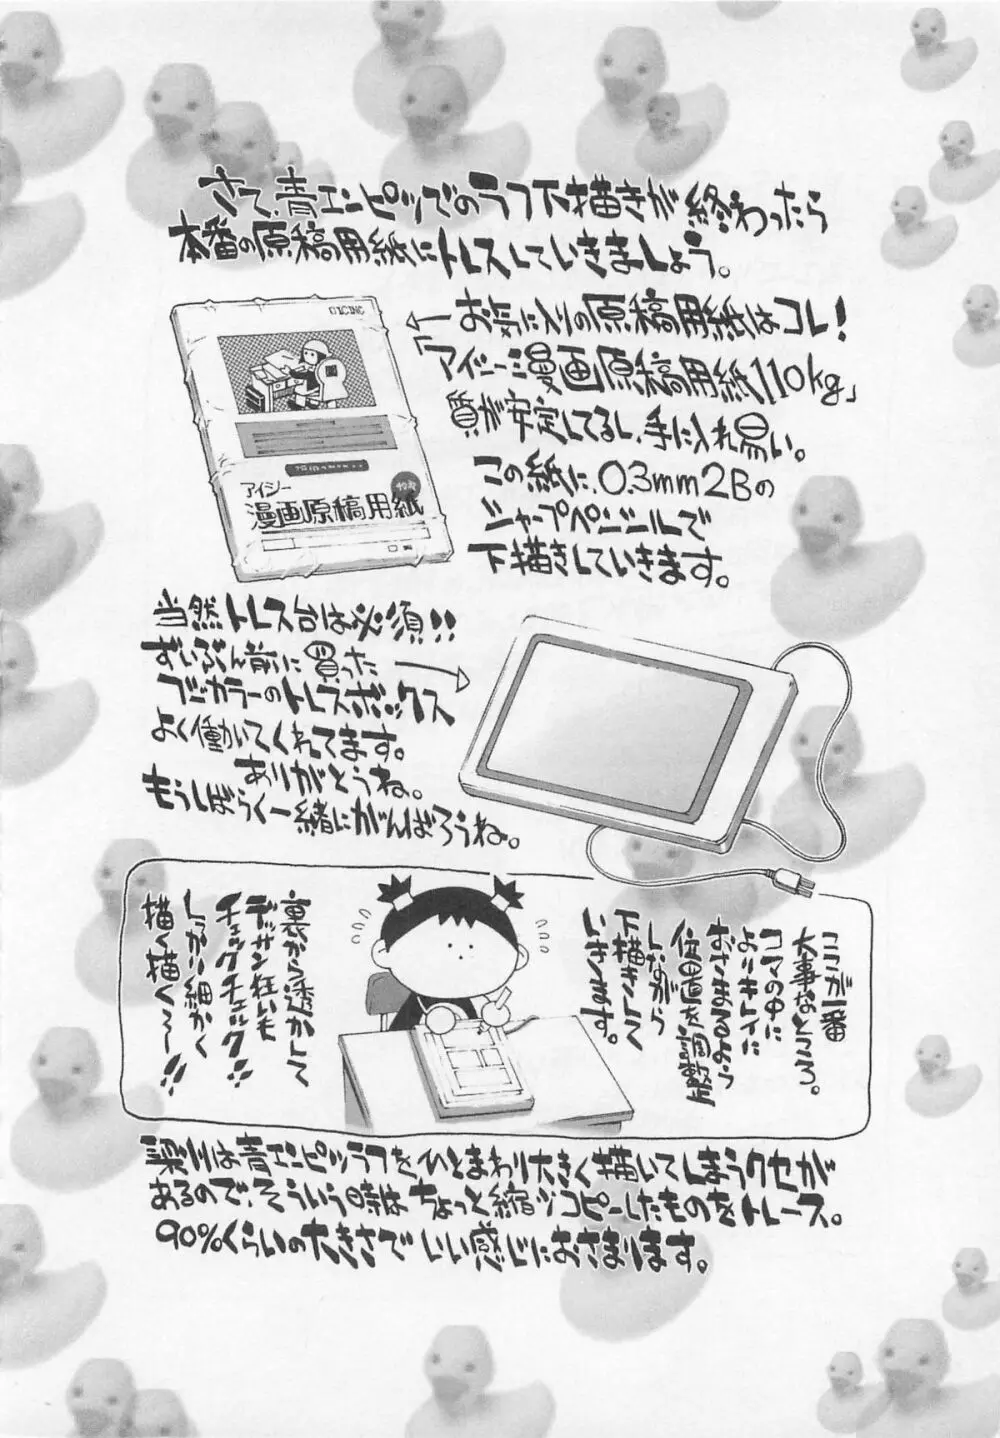 さて、青エンピツでのラフ下描きが終わったら
本番の原稿用紙にトレスしていきましょう。
お気に入りの原稿用紙はコレ!
「アイシー漫画原稿用紙110kg」
質が安定してるし、手に入れ易い。
この紙に、0.3mm2Bの
シャープペンシルで
下描きしていきます。
アイシー
漫画原稿用紙
当然トレス台は必須!!
ずいぶん前に買った
フジカラーのトレスボックス
よく働いてくれてます。
ありがとうね。
もうしばらく一緒にがんばろうね。
ここが一番
大事なところ。
コマの中に
よりキレイに
おさまるよう
位置を調整
しながら
下描きして
いきます。
裏から透かして
デッサン狂いも
チェックチェック!!
しっかり細かく
描く描く〜〜!!
は青エンピツラフをひとまわり大きく描いてしまうクセが
あるので、そういう時はちょっと縮小コピーしたものをトレース。
90%くらいの大きさでいい感じにおさまります。